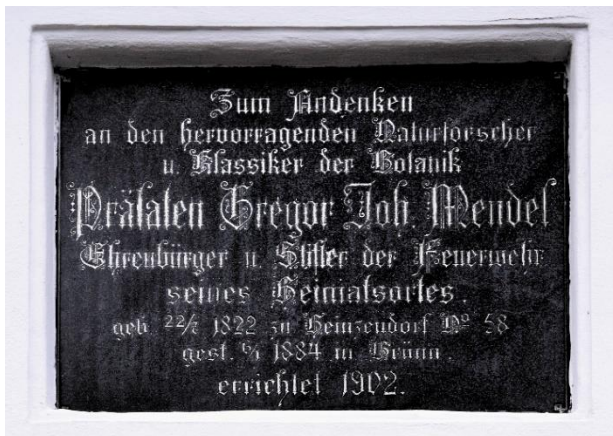 Zum Andenken
an den hervorragenden Naturforscher
u. Klassiker der Botanik
Prälaten Gregor Joh. Mendel
Ehrenbürger u. Stifter der Feuerwehr
seines Heimatsortes.
geb. 22/7 1822 zu Heinzendorf No 58
gest. 6/1 1884 in Brünn.
errichtet 1902.